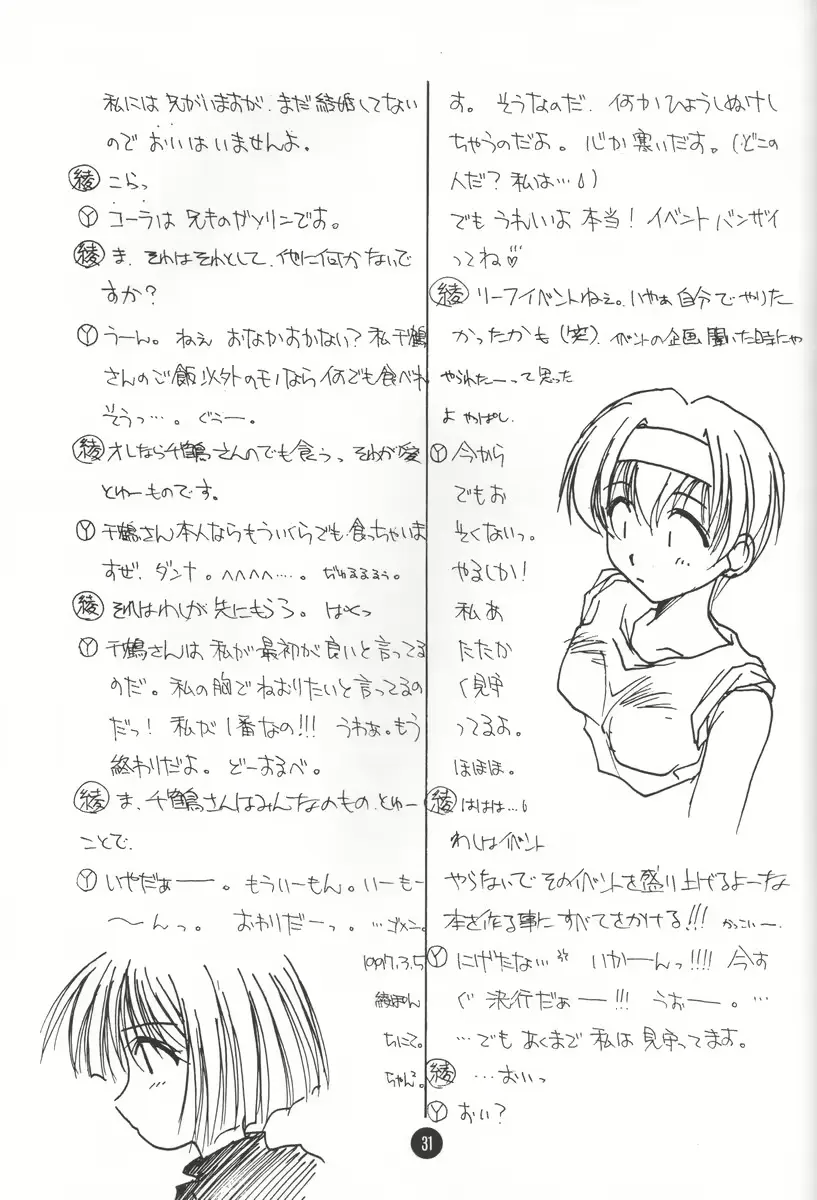 す。そうなのだ、何かひょうしぬけし
ちゃうのだよ。心が寒いだす。(どこの
人だ?私は…)
でもうれしいよ本当!イベントバンザイ
ってね♡
綾 リーフイベントねぇ。いやぁ自分でやりた
かったかも(笑)、イベントの企画聞いた時にゃ
やられたーって思った
よやっぱし、
Y 今から
でもお
そくないっ。
やるしか!
私あ
たたか
く見守
ってるよ。
ほほほ。
綾 ははは…
わしはイベント
やらないでそのイベントを盛り上げるよーな
本を作る事にすべてをかける!!!かっこいー、
Y にげたな…いかーんっ!!!!今す
ぐ決行だぁー!!!うおー。…
…でもあくまで私は見守ってます。
綾 …おいっ
Y おい?
私には兄がいますが、まだ結婚してない
のでおいはいませんよ。
綾 こらっ
Y コーラは兄きのガソリンです。
綾 ま、それはそれとして、他に何かないで
すか?
Y うーん。ねぇおなかすかない?私千鶴
さんのご飯以外のモノなら何でも食べれ
そうっ…。ぐぅー。
綾 オレなら千鶴さんのでも食うっ、それが愛
とゆーものです。
Y 千鶴さん本人ならもういくらでも食っちゃいま
すぜ、ダンナ。へへへへ…。ぢゅるるるぅ。
綾 それはわしが先にもらう。ぱくっ
Y 千鶴さんは私が最初が良いと言ってる
のだ。私の胸でねむりたいと言ってるの
だっ!私が1番なの!!!うわぁ。もう
終わりだよ。どーするべ。
綾 ま、千鶴さんはみんなのもの、とゆー
ことで、
Y いやだぁー。もういーもん。いーもー
〜んっ。おわりだーっ。…ゴメン。
1997.3.5
綾ぽん
ちにて。
ちゃんこ。
31